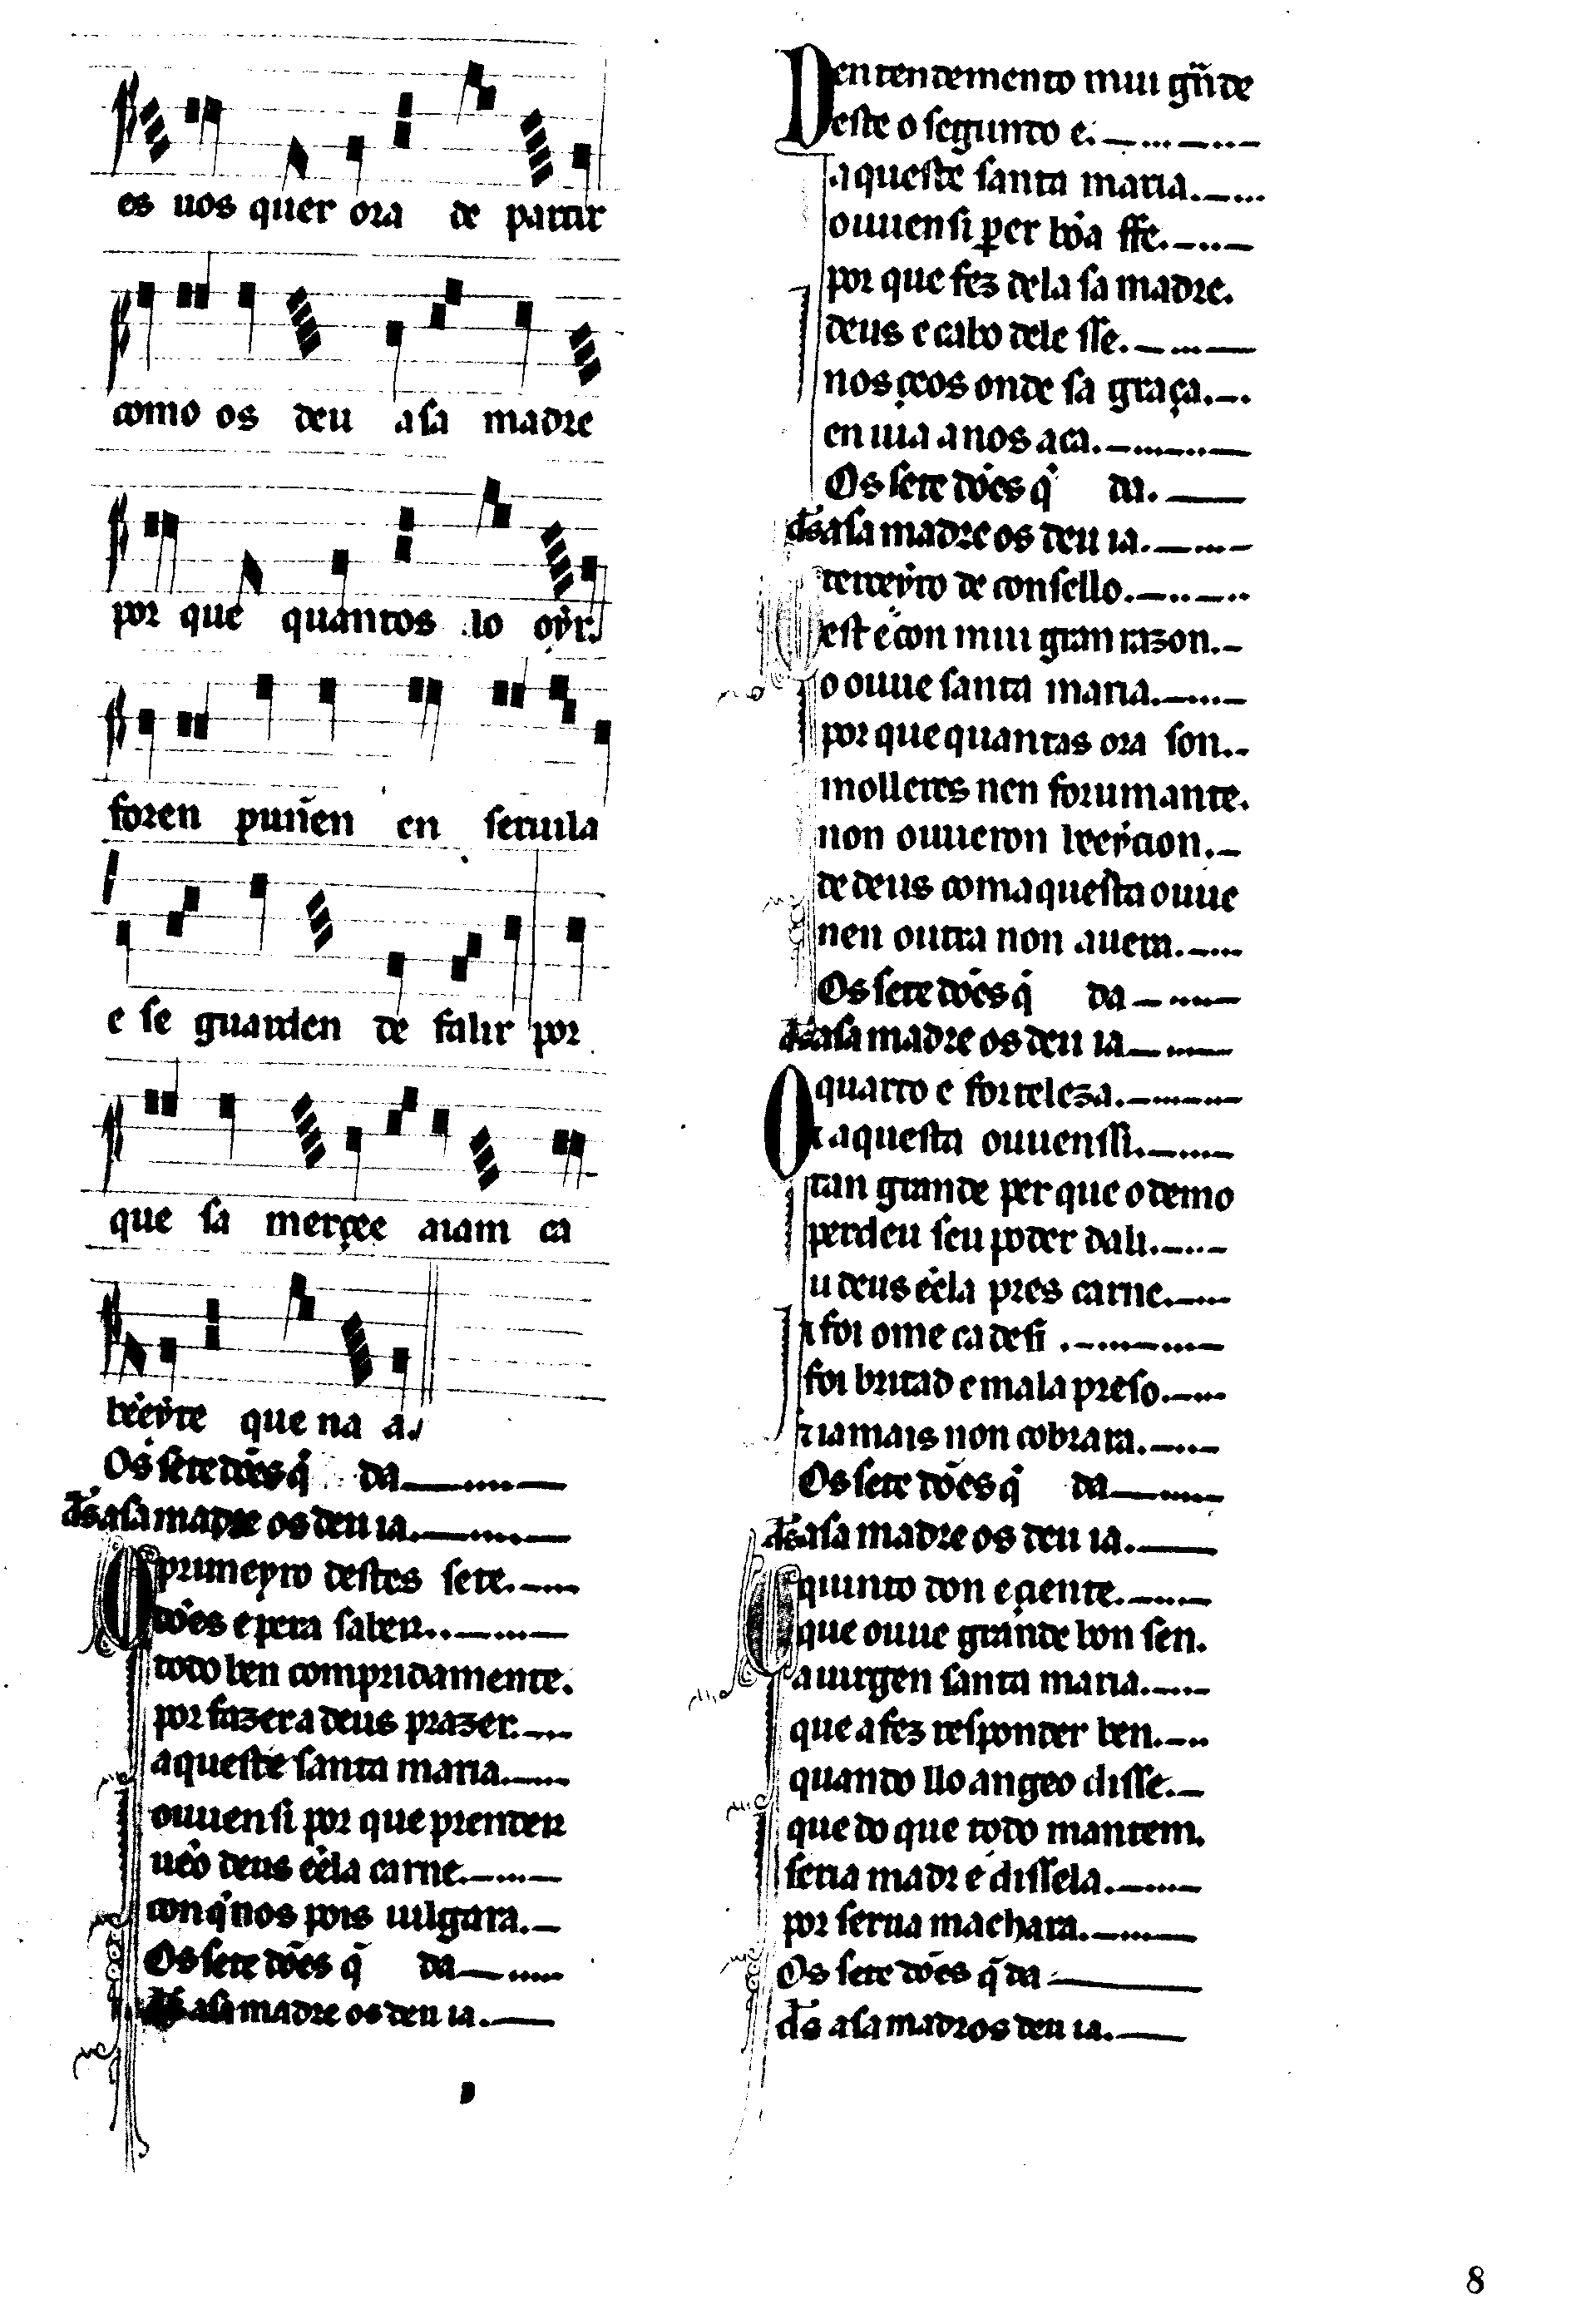 es uos quer ora de partir
como os deu a sa madre
por que quantos lo oyr.
foren punnen en seruila
e se guarden de falir por
que sa merçee aiam ca
bẽeyte que na a.
Os sete dões q̃ da
ds̃ a sa madre os deu ia.
O primeyro destes sete.
dões e pera saber..
todo ben compridamente.
por fazer a deus prazer.
aqueste santa maria.
ouuen si por que prender
uẽo deus ẽela carne.
con q̃ nos pois iulgara.
Os sete dões q̃ da
ds̃ a sa madre os deu ia.
Dentendemento mui grãde
este o segundo e.
aqueste santa maria.
ouuen si per bõa ffe.
por que fez dela sa madre.
deus e cabo dele sse.
nos çeos onde sa graça.
en uia a nos aca.
Os sete dões q̃ da.
ds̃ a sa madre os deu ia.
O terceyro de consello.
est e con mui gran razon.
o ouue santa maria.
por que quantas ora son.
molleres nen forum ante.
non ouueron bẽeyçion.
de deus com aquesta ouue
nen outra non auera.
Os sete dões q̃ da
ds̃ a sa madre os deu ia
O quarto e forteleza.
⁊ aquesta ouuenssi.
tan grande per que o demo
perdeu seu poder dali.
u deus ẽela pres carne.
⁊ foi ome ca desi.
foi britad e mala preso.
⁊ iamais non cobrara.
Os sete dões q̃ da
ds̃ a sa madre os deu ia.
O quinto don e çiente.
que ouue grande bon sen.
a uirgen santa maria.
que a fez responder ben.
quando llo angeo disse.
que do que todo mantem.
seria madr e dissela.
por serua macharа.
Os sete dões q̃ da
ds̃ a sa madr os deu ia.
8